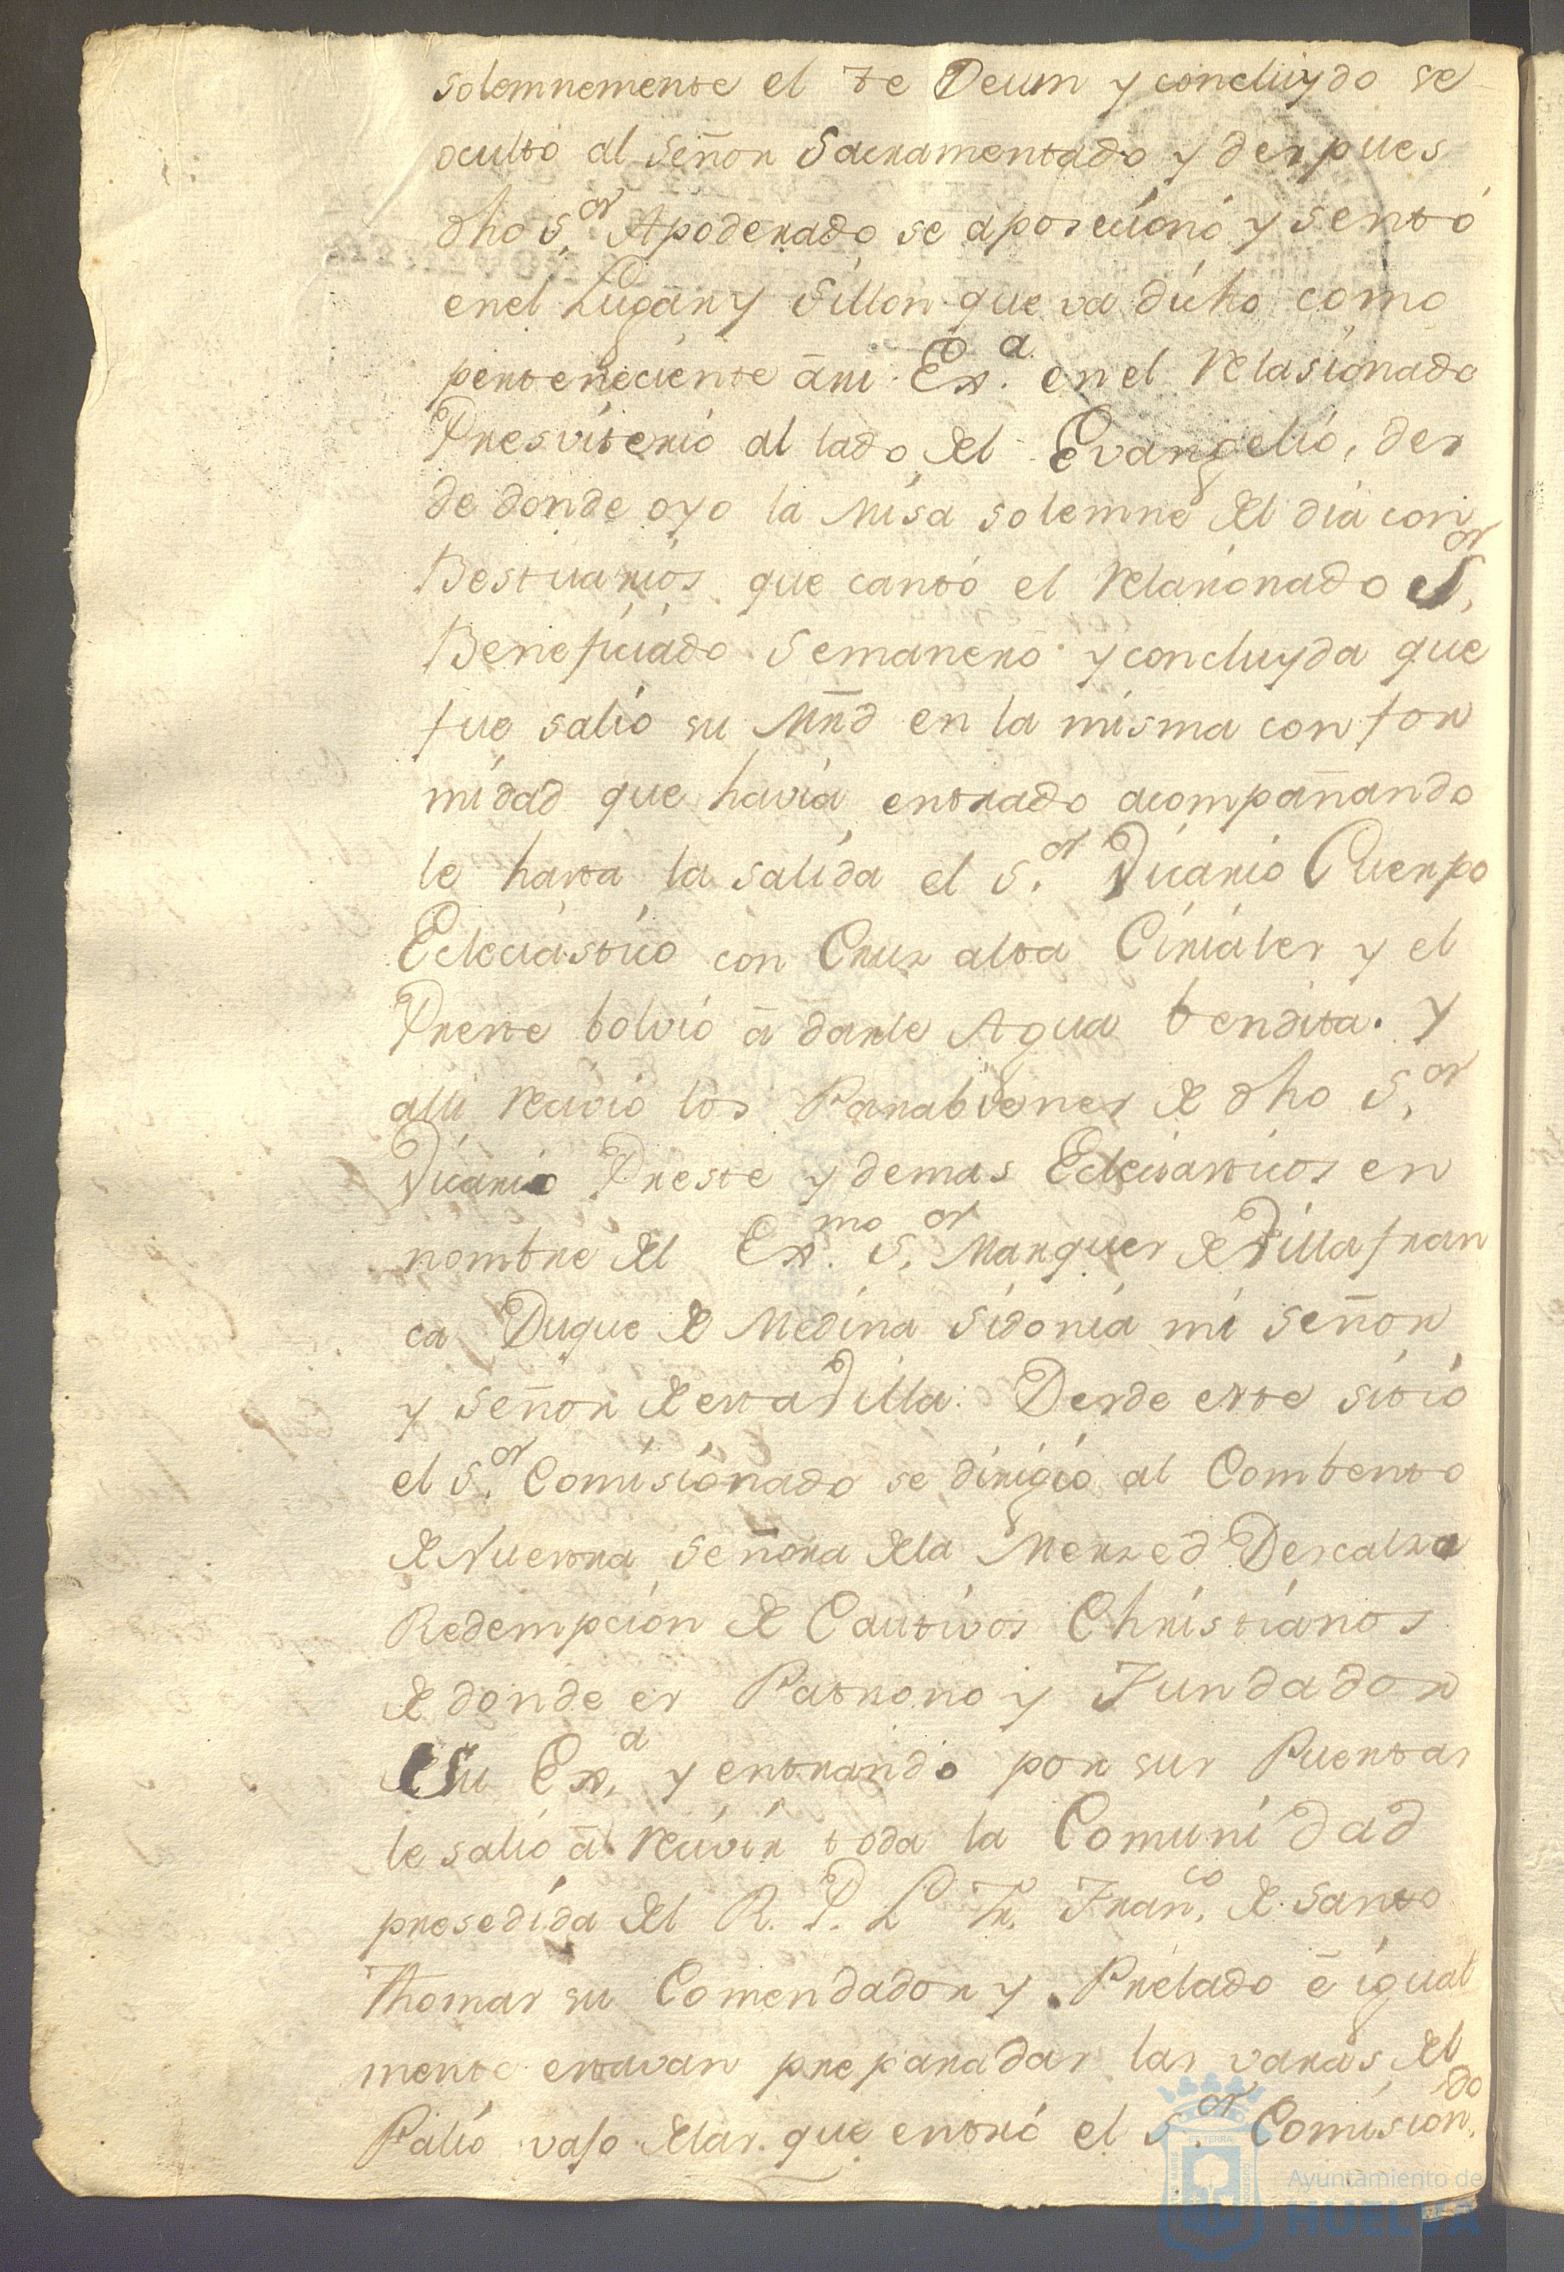 solemnemente el te Deum y concluydo se
ocultó al Señor Sacramentado y despues
dho S.or Apoderado se aposecionó y sentó
en el Lugar y Sillon que va dicho como
perteneciente á mi Ex.a en el relasionado
Presviterio al lado del Evangelio, des
de donde oyo la Misa solemne del dia con
Bestuarios que cantó el relacionado S.or
Beneficiado Semanero y concluyda que
fue salió su Mrd en la misma confor
midad que havia entrado acompañando
le hasta la salida el S.or Vicario Cuerpo
Ecleciástico con Cruz alta Ciriales y el
Preste bolvió á darle Agua bendita. Y
alli recivio los Parabienes de dho S.or
Vicario Preste y demas Ecleciasticos en
nombre del Ex.mo S.or Marques de Villafran
ca Duque de Medina Sidonia mi Señor
y Señor de esta Villa. Desde este sitio
el S.or Comisionado se dirigió al Combento
de Nuestra Señora de la Merzed Descalza
Redempcion de Cautivos Christianos
de donde es Patrono y Fundador
Su Ex.a y entrando por sus Puertas
le salió á recivir toda la Comunidad
presedida del R. P. L. Fr. Fran.co de Santo
Thomas su Comendador y Prelado é igual
mente estavan preparadas las varas del
Palio vajo delas que entró el S.or Comision.do
Ayuntamiento de
HUELVA